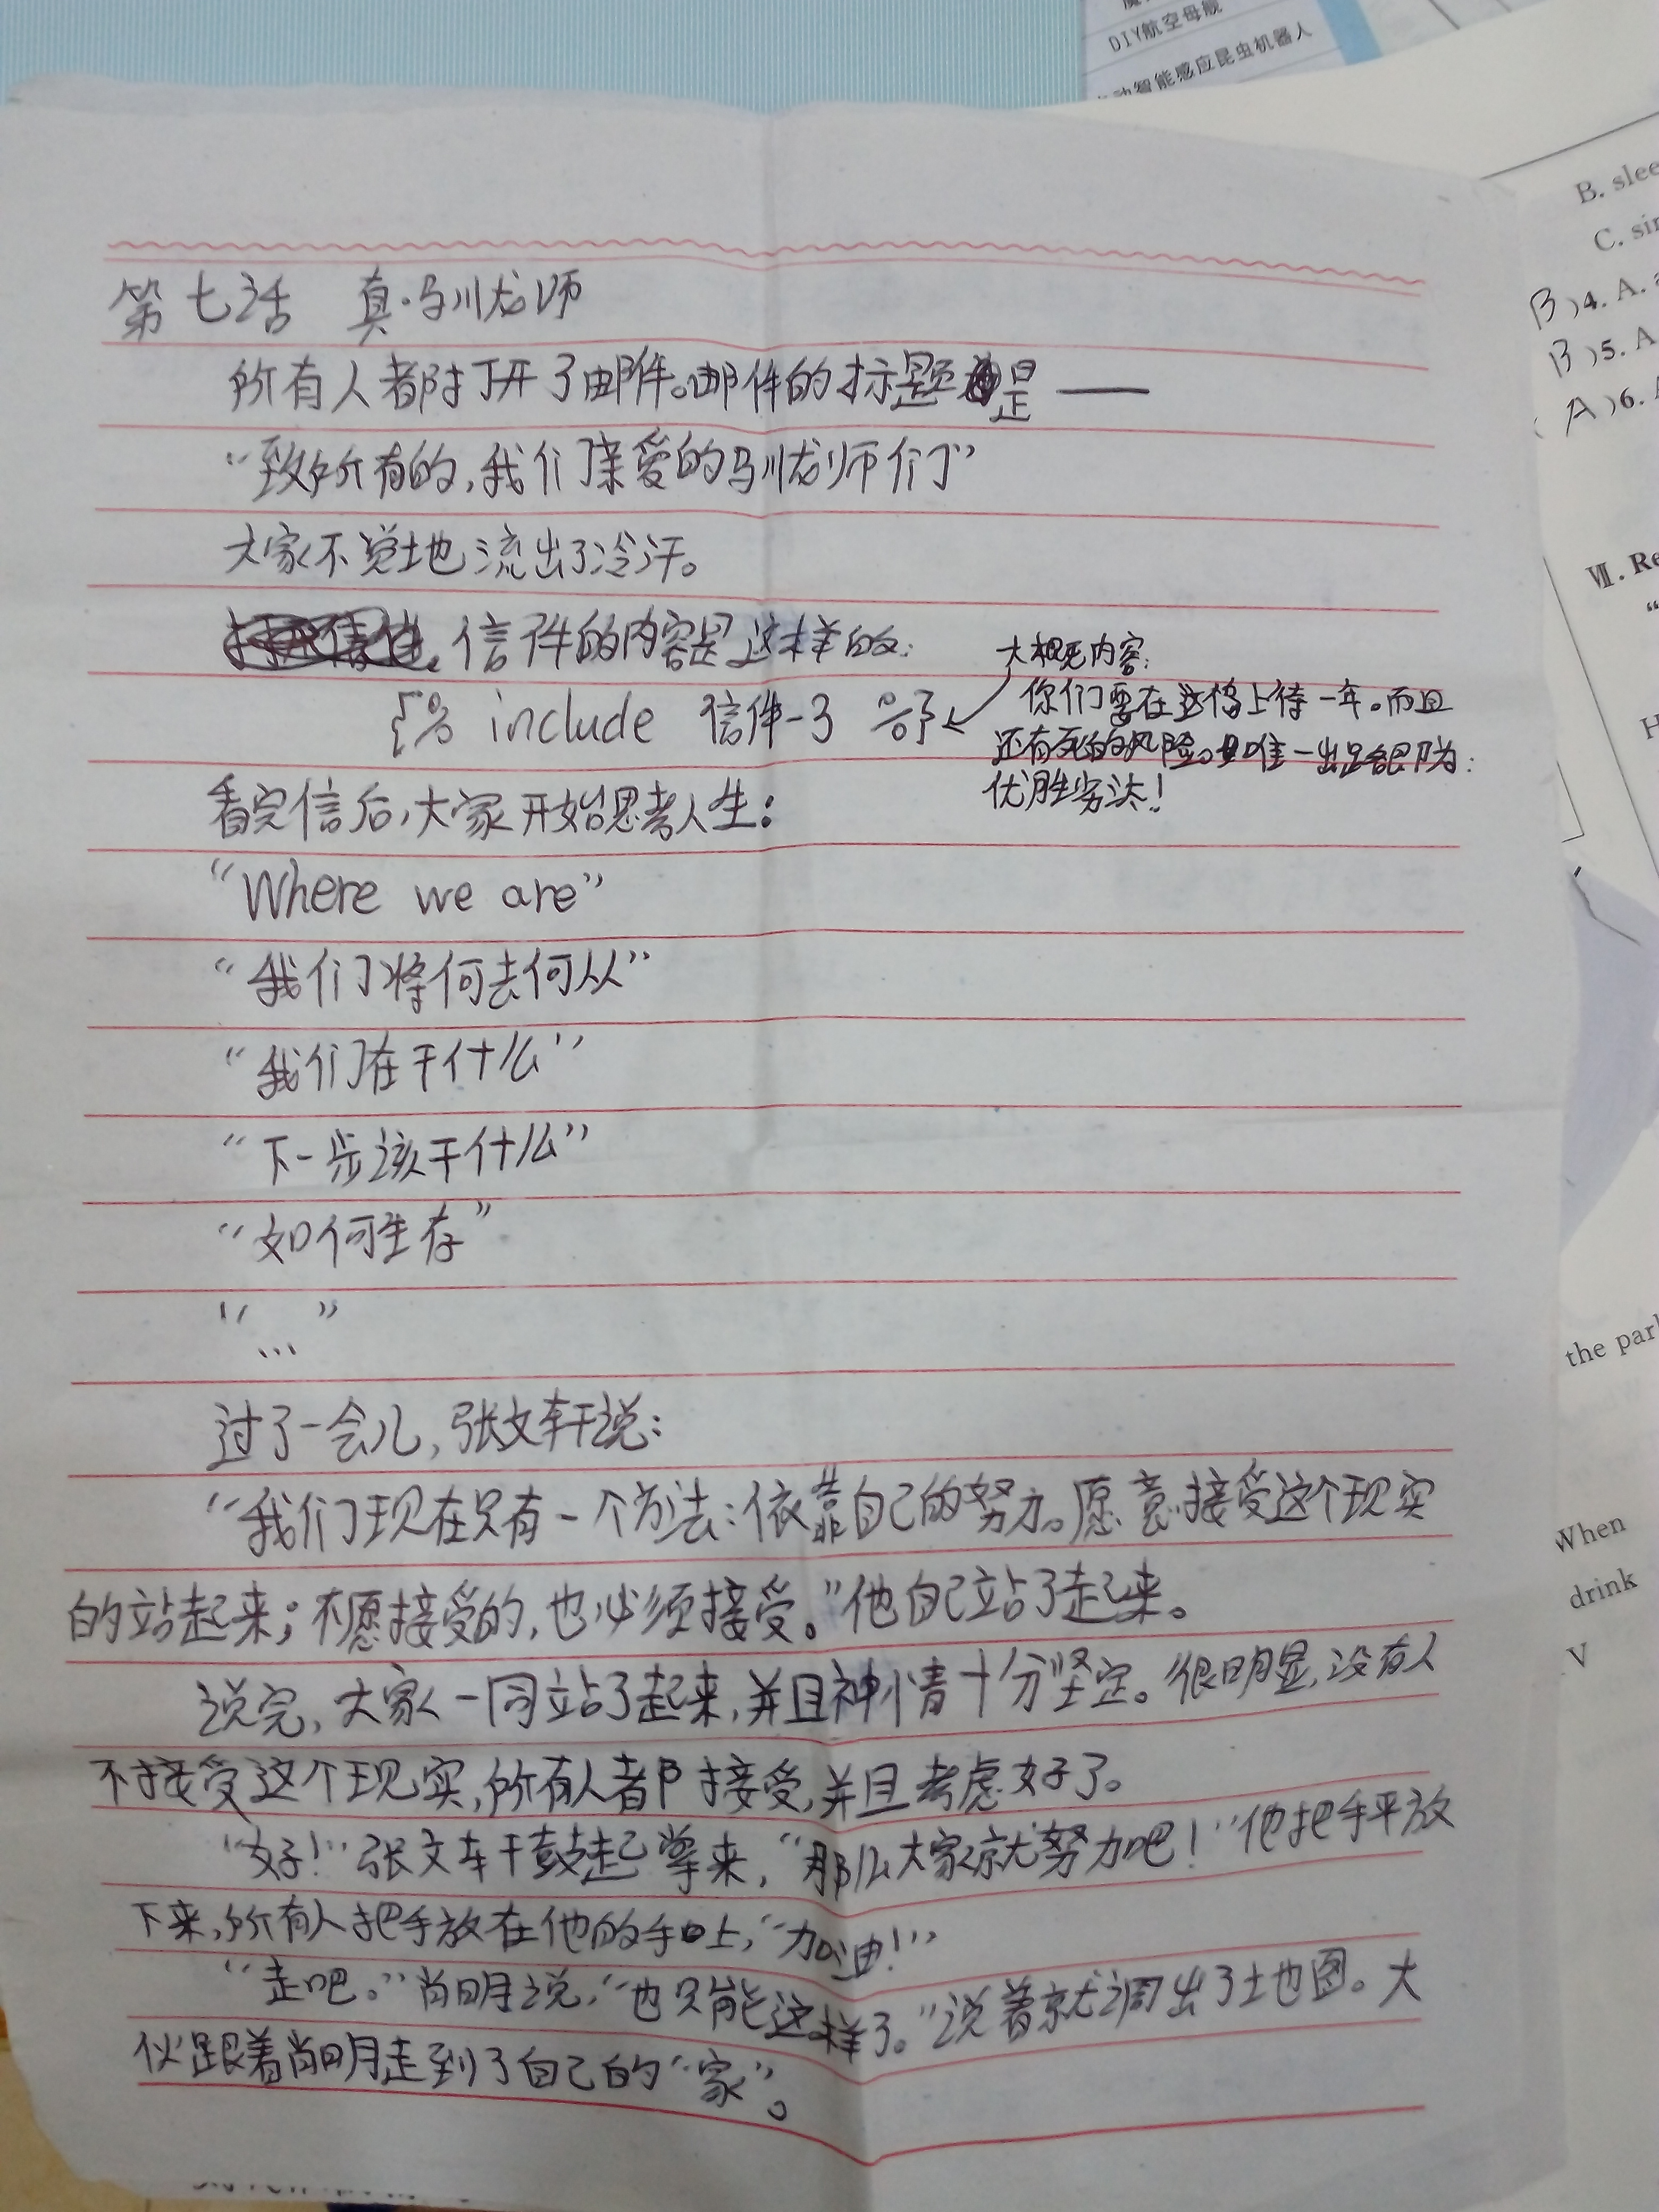 DIY航空母舰
动智能感应昆虫机器人
B. slee
C. sin
B)4. A.
B)5. A
(A)6.
Ⅶ. Re
第七话 真·驯龙师
所有人都打开了邮件。邮件的标题是——
“致所有的,我们亲爱的驯龙师们”
大家不觉地流出了冷汗。
信件的内容是这样的:
{% include 信件-3 %}
大概内容:
你们要在这待上一年。而且
还有死的风险。唯一出路即为:
优胜劣汰!
看完信后,大家开始思考人生:
“Where we are”
“我们将何去何从”
“我们在干什么”
“下一步该干什么”
“如何生存”
“…”
过了一会儿,张文轩说:
“我们现在只有一个方法:依靠自己的努力。愿意接受这个现实
的站起来;不愿接受的,也必须接受。”他自己站了起来。
说完,大家一同站了起来,并且神情十分坚定。很明显,没有人
不接受这个现实,所有人都接受,并且考虑好了。
“好!”张文轩鼓起掌来,“那么大家就努力吧!”他把手平放
下来,所有人把手放在他的手上,“加油!”
“走吧。”肖明说,“也只能这样了。”说着就调出了地图。大
伙跟着肖明走到了自己的“家”。
the park
When
drink
V